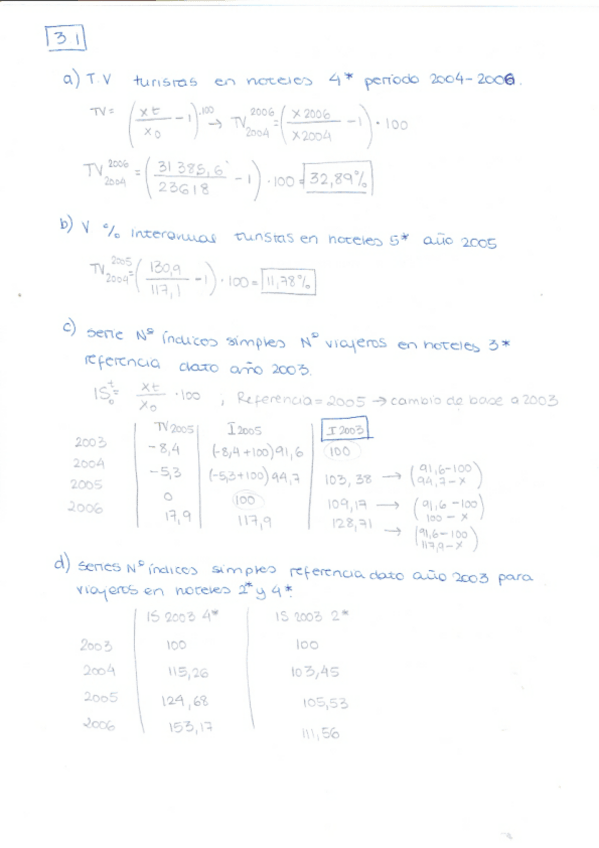 31
a) TV turistas en hoteles 4* período 2004-2006.
TV = (xt/x0 - 1)·100 → TV 2006 2004 = (x2006/x2004 - 1)·100
TV 2006 2004 = (31385,6/23618 - 1)·100 = 32,89%
b) V % interanual turistas en hoteles 5* año 2005
TV 2005 2004 = (130,9/117,1 - 1)·100 = 11,78%
c) serie Nº índices simples Nº viajeros en hoteles 3*
referencia dato año 2003.
IS t 0 = xt/x0 ·100 ; Referencia = 2005 → cambio de base a 2003
TV 2005 I 2005 I 2003
2003 -8,4 (-8,4+100) 91,6 100
2004 -5,3 (-5,3+100) 94,7 103,38 → (91,6-100 94,7-x)
2005 0 100 109,17 → (91,6-100 100-x)
2006 17,9 117,9 128,71 → (91,6-100 117,9-x)
d) series Nº índices simples referencia dato año 2003 para
viajeros en hoteles 2* y 4*.
IS 2003 4* IS 2003 2*
2003 100 100
2004 115,26 103,45
2005 124,68 105,53
2006 153,17 111,56